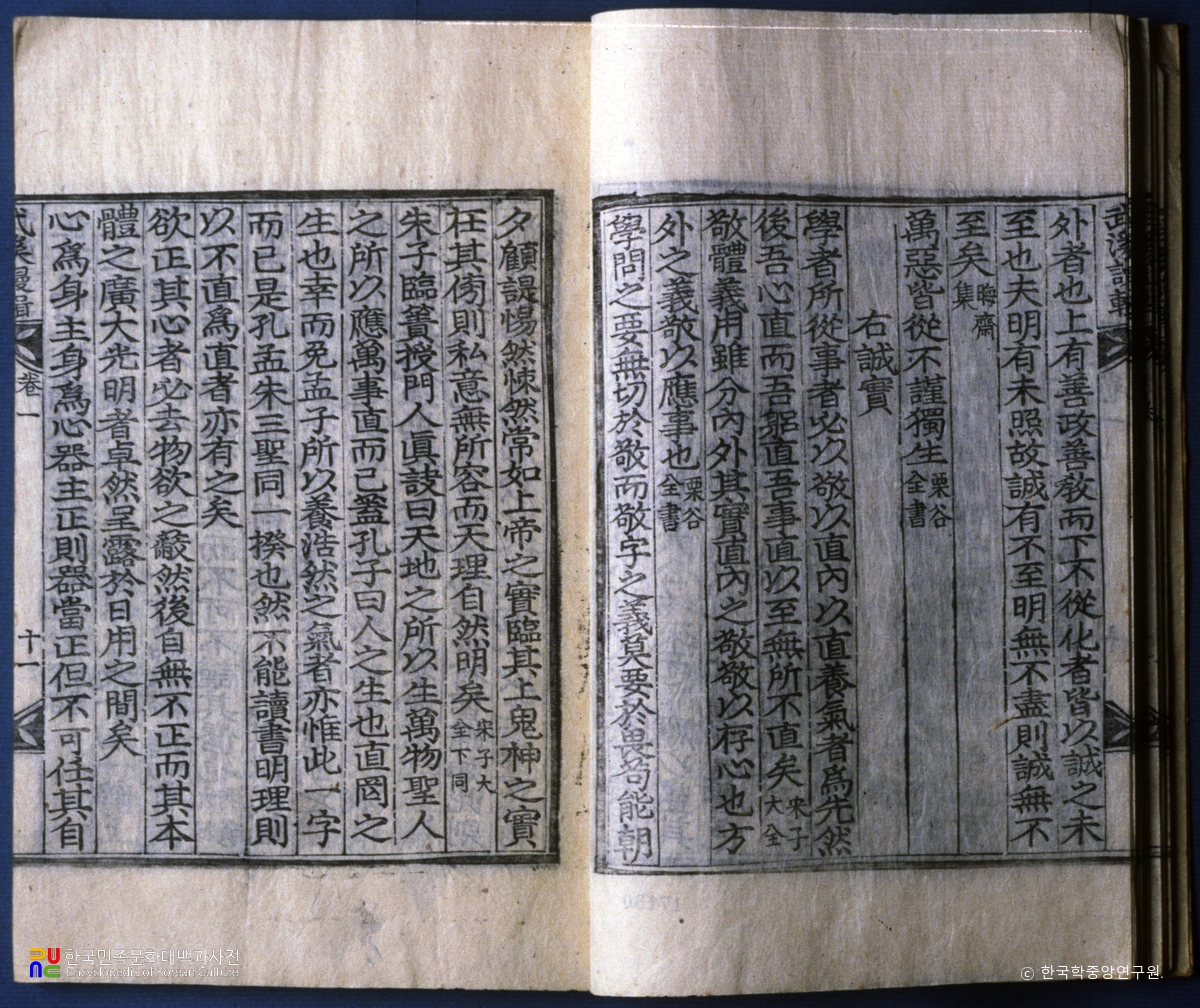 外者也上有善政善敎而下不從化者皆以誠之未
至也夫明有未照故誠有不至明無不盡則誠無不
至矣晦齋集
萬惡皆從不謹獨生栗谷全書
右誠實
學者所從事者必以敬以直內以直養氣者爲先然
後吾心直而吾躬直吾事直以至無所不直矣宋子大全
敬體義用雖分內外其實直內之敬敬以存心也方
外之義敬以應事也栗谷全書
學問之要無切於敬而敬字之義莫要於畏苟能朝
夕顧諟惕然悚然常如上帝之實臨其上鬼神之實
在其傍則私意無所容而天理自然明矣宋子大全下同
朱子臨簀授門人眞訣曰天地之所以生萬物聖人
之所以應萬事直而已蓋孔子曰人之生也直罔之
生也幸而免孟子所以養浩然之氣者亦惟此一字
而已是孔孟朱三聖同一揆也然不能讀書明理則
以不直爲直者亦有之矣
欲正其心者必去物欲之蔽然後自無不正而其本
體之廣大光明者卓然呈露於日用之間矣
心爲身主身爲心器主正則器當正但不可任其自
卷一
十一
한국민족문화대백과사전
Encyclopedia of Korean Culture
© 한국학중앙연구원.